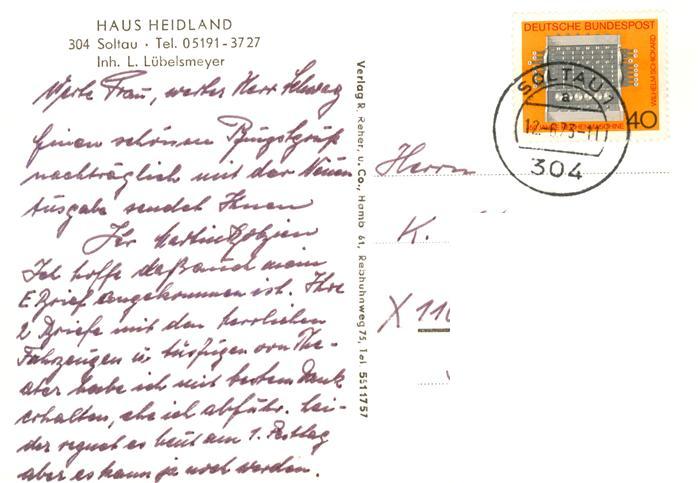 HAUS HEIDLAND
304 Soltau · Tel. 05191-3727
Inh. L. Lübelsmeyer
Werte Frau, werter Herr
Einen schönen Pfingstgruß
nachträglich mit der Neuen
Ausgabe sendet Ihnen
Ihr Martin
Ich hoffe daß auch mein
E Brief angekommen ist. Ihre
2 Briefe mit den herrlichen
Fahrzeugen u. von
aber habe ich mit bestem Dank
erhalten, ehe ich abfuhr. Lei-
der regnet es heut am 1. Festtag
aber es kann ja noch werden.
Verlag R. Reher, u. Co., Hamb 61, Rebhuhnweg 75, Tel 5511757
DEUTSCHE BUNDESPOST
WILHELM SCHICKARD
40
SOLTAU 2
a
304
Herrn
K.
X 110